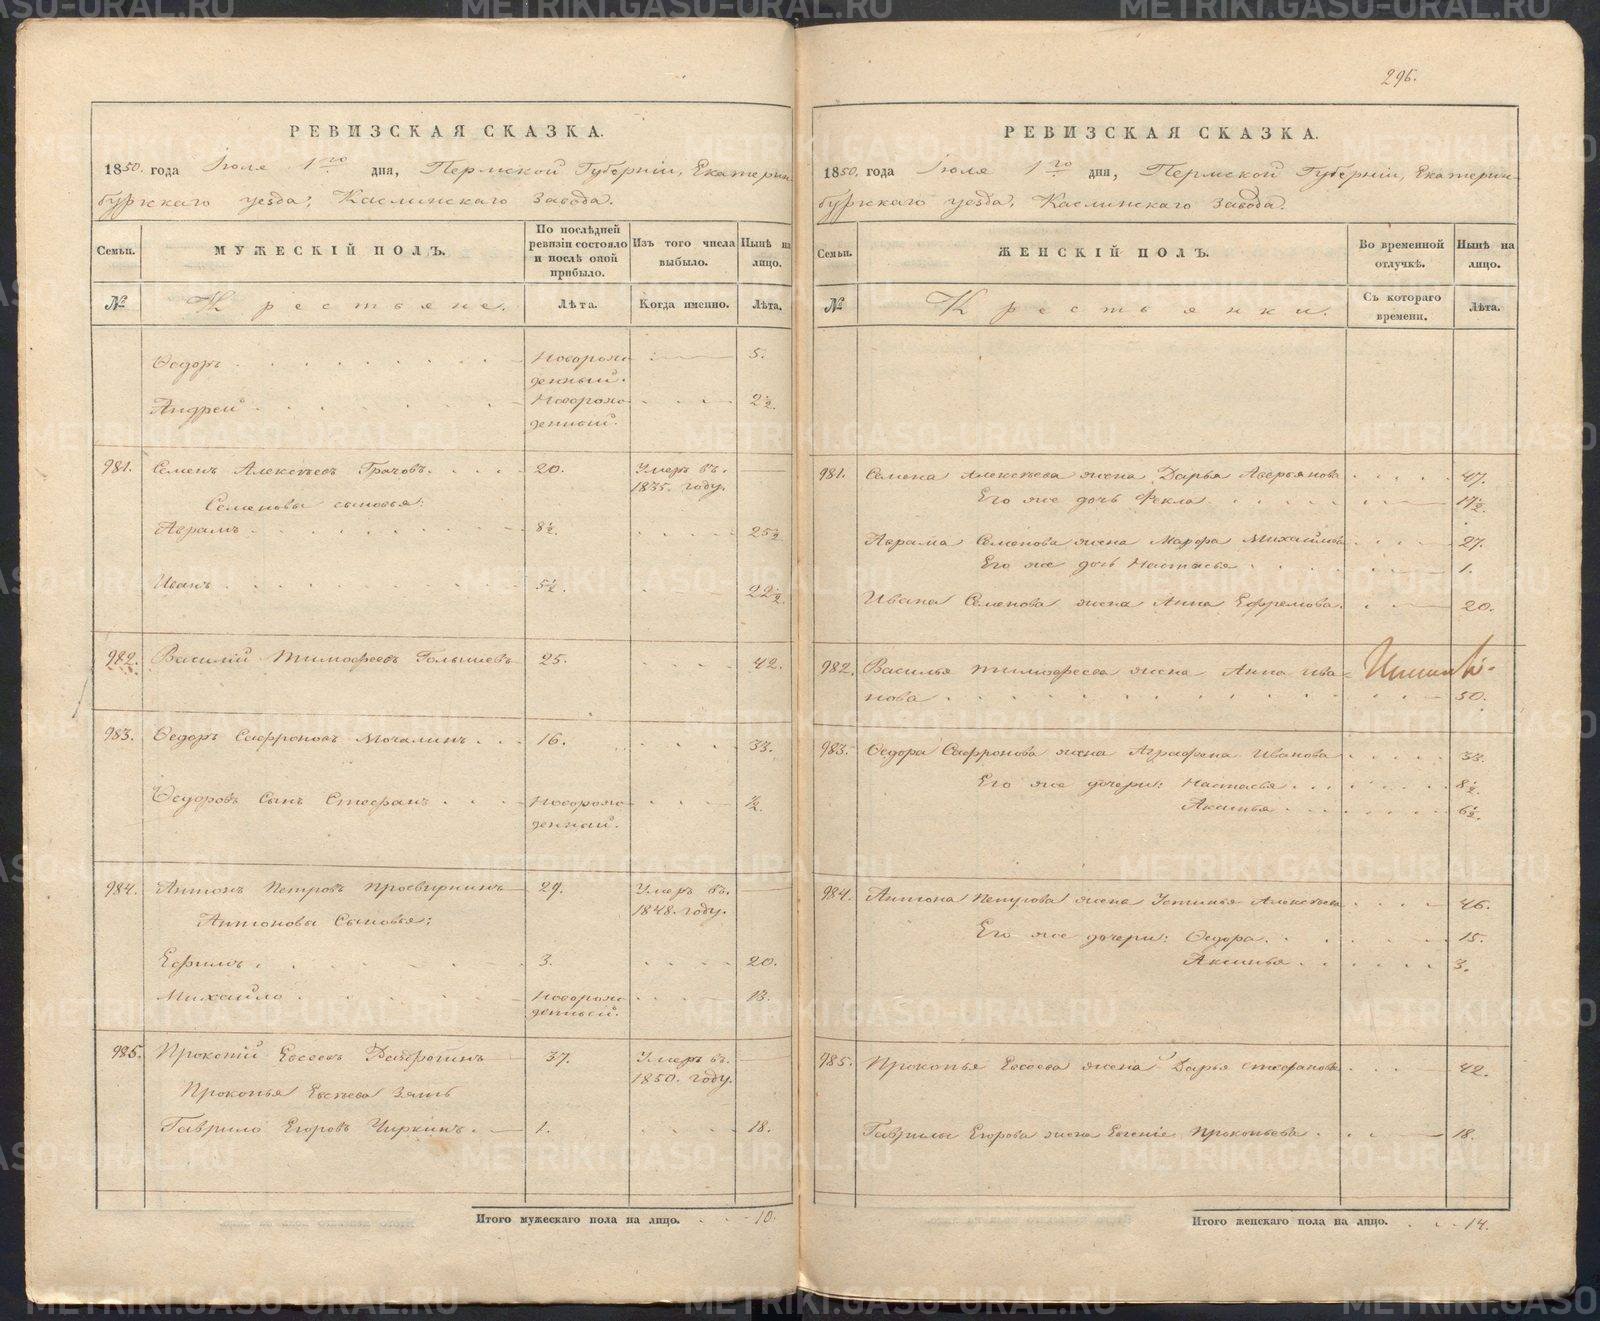 296.
РЕВИЗСКАЯ СКАЗКА.
1850. года Іюля 1го дня, Пермской Губерніи, Екатерин-
бургскаго уезда, Каслинскаго Завода.
Семьи.
МУЖЕСКІЙ ПОЛЪ.
По послѣдней ревизіи состояло и послѣ оной прибыло.
Изъ того числа выбыло.
Нынѣ на лицо.
№
Крестьяне.
Лѣта.
Когда именно.
Лѣта.
Ѳедоръ Новорож- 5.
денный.
Андрей Новорож- 2½.
денный.
981. Семенъ Алексѣевъ Грачовъ. 20. Умеръ въ
1835. году.
Семеновы сыновья:
Аврамъ 8½. 25½
Иванъ 5½. 22½.
982. Василій Тимофеевъ Голышевъ 25. 42.
983. Ѳедоръ Сафроновъ Мочалинъ. 16. 33.
Ѳедоровъ Сынъ Стефанъ. Новорож- ½.
денный.
984. Антонъ Петровъ Просвирнинъ 29. Умеръ въ
1848. году.
Антоновы Сыновья:
Ефимъ. 3. 20.
Михайло Новорож- 13.
денный.
985. Прокопій Евсеевъ 37. Умеръ въ
1850. году.
Прокопья Евсѣева Зять
Гаврило Егоровъ Чиркинъ. 1. 18.
Итого мужескаго пола на лицо. 10.
РЕВИЗСКАЯ СКАЗКА.
1850. года Іюля 1го дня, Пермской Губерніи, Екатерин-
бургскаго уезда, Каслинскаго Завода.
Семьи.
ЖЕНСКІЙ ПОЛЪ.
Во временной отлучкѣ.
Нынѣ на лицо.
№
Крестьянки.
Съ котораго времени.
Лѣта.
981. Семена Алексѣева жена Дарья Аверьянова 47.
Его же дочь Фекла 17½.
Аврама Семенова жена Марфа Михайлова 27.
Его же дочь Настасья 1.
Ивана Семенова жена Анна Ефремова. 20.
982. Василья Тимофеева жена Анна Ива-
нова 50.
983. Ѳедора Сафронова жена Аграфена Иванова 33.
Его же дочери: Настасья 8½.
Аксинья 6½.
984. Антона Петрова жена Устинья Алексѣева 46.
Его же дочери: Ѳедора. 15.
Аксинья 3.
985. Прокопья Евсеева жена Дарья Стефанова 42.
Гаврилы Егорова жена Евгеніе Прокопьева 18.
Итого женскаго пола на лицо. 14.
METRIKI.GASO-URAL.RU